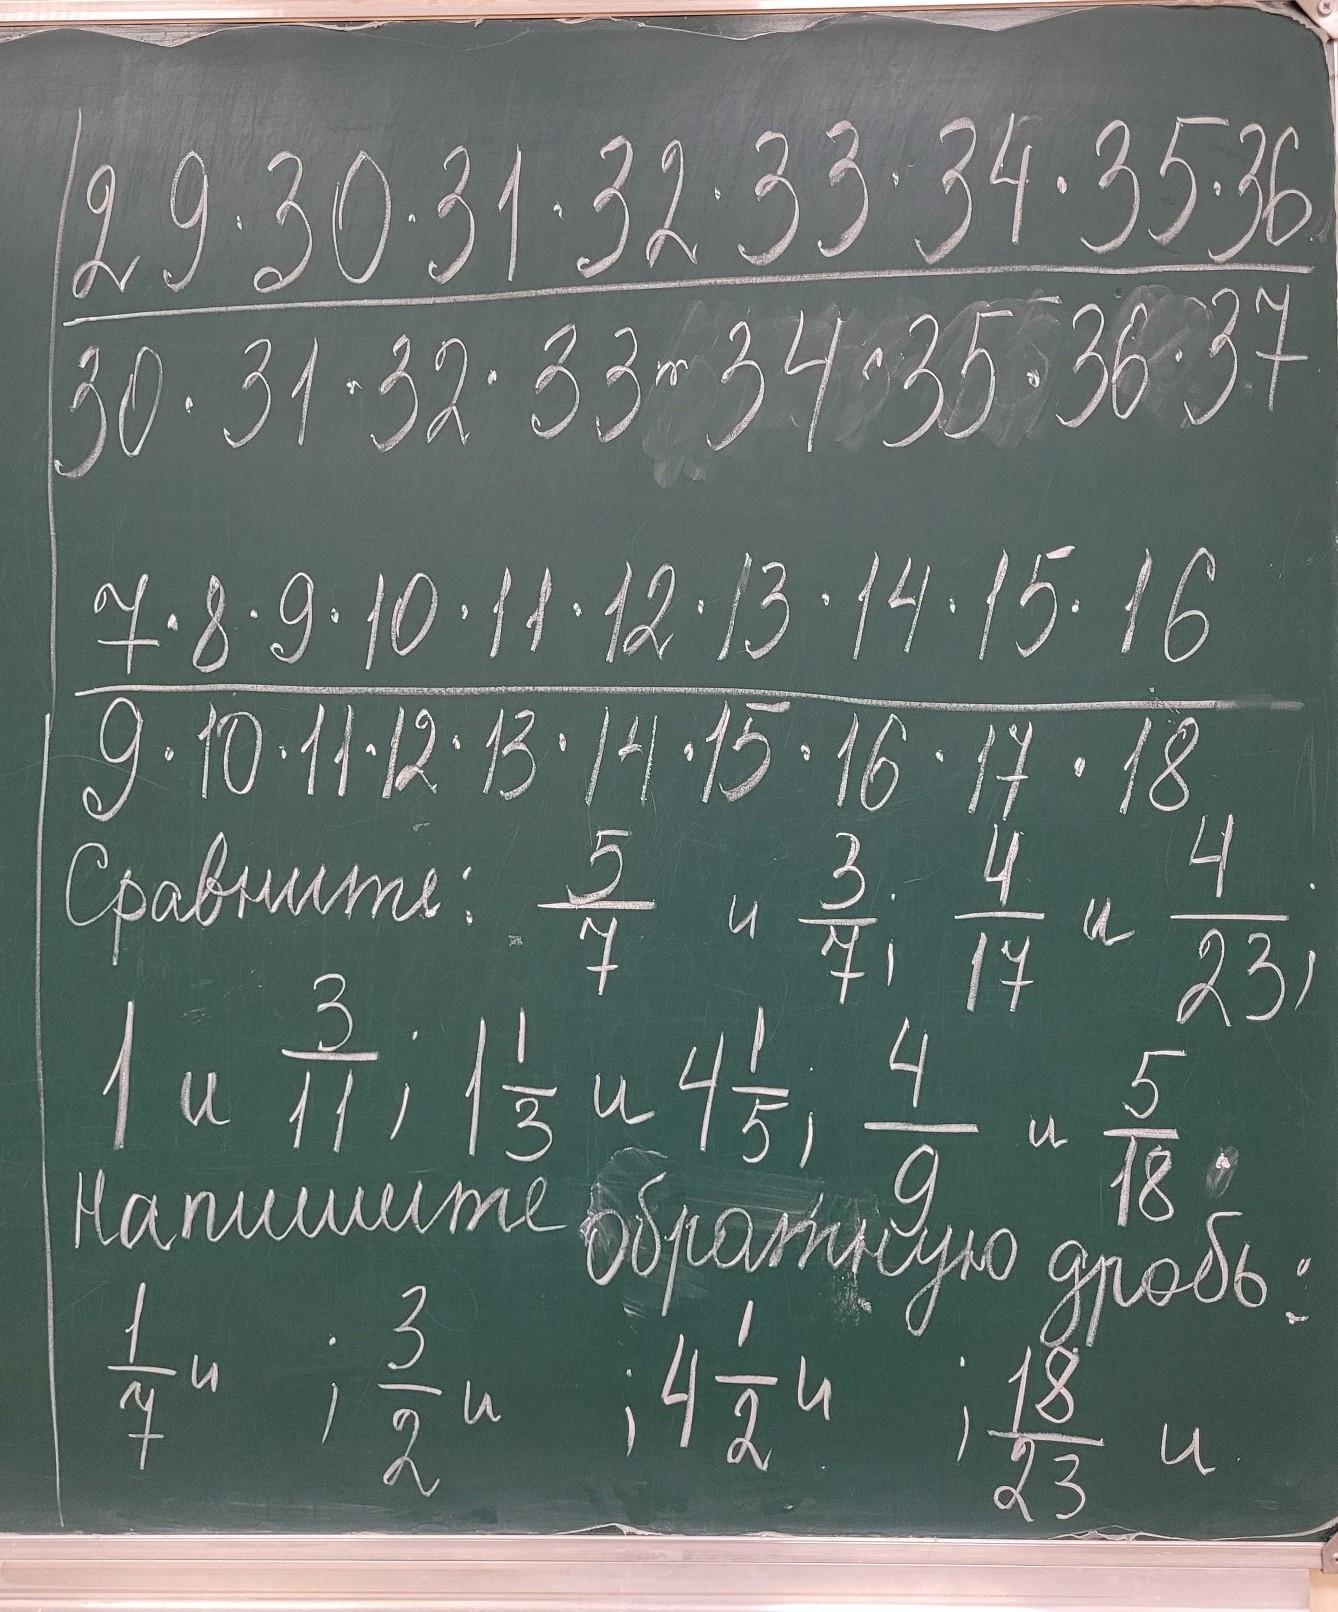 29·30·31·32·33·34·35·36
30·31·32·33·34·35·36·37
7·8·9·10·11·12·13·14·15·16
9·10·11·12·13·14·15·16·17·18
Сравните: 5/7 и 3/7; 4/17 и 4/23;
1 и 3/11; 1 1/3 и 4 1/5; 4/9 и 5/18.
Напишите обратную дробь:
1/7 и ; 3/2 и ; 4 1/2 и ; 18/23 и